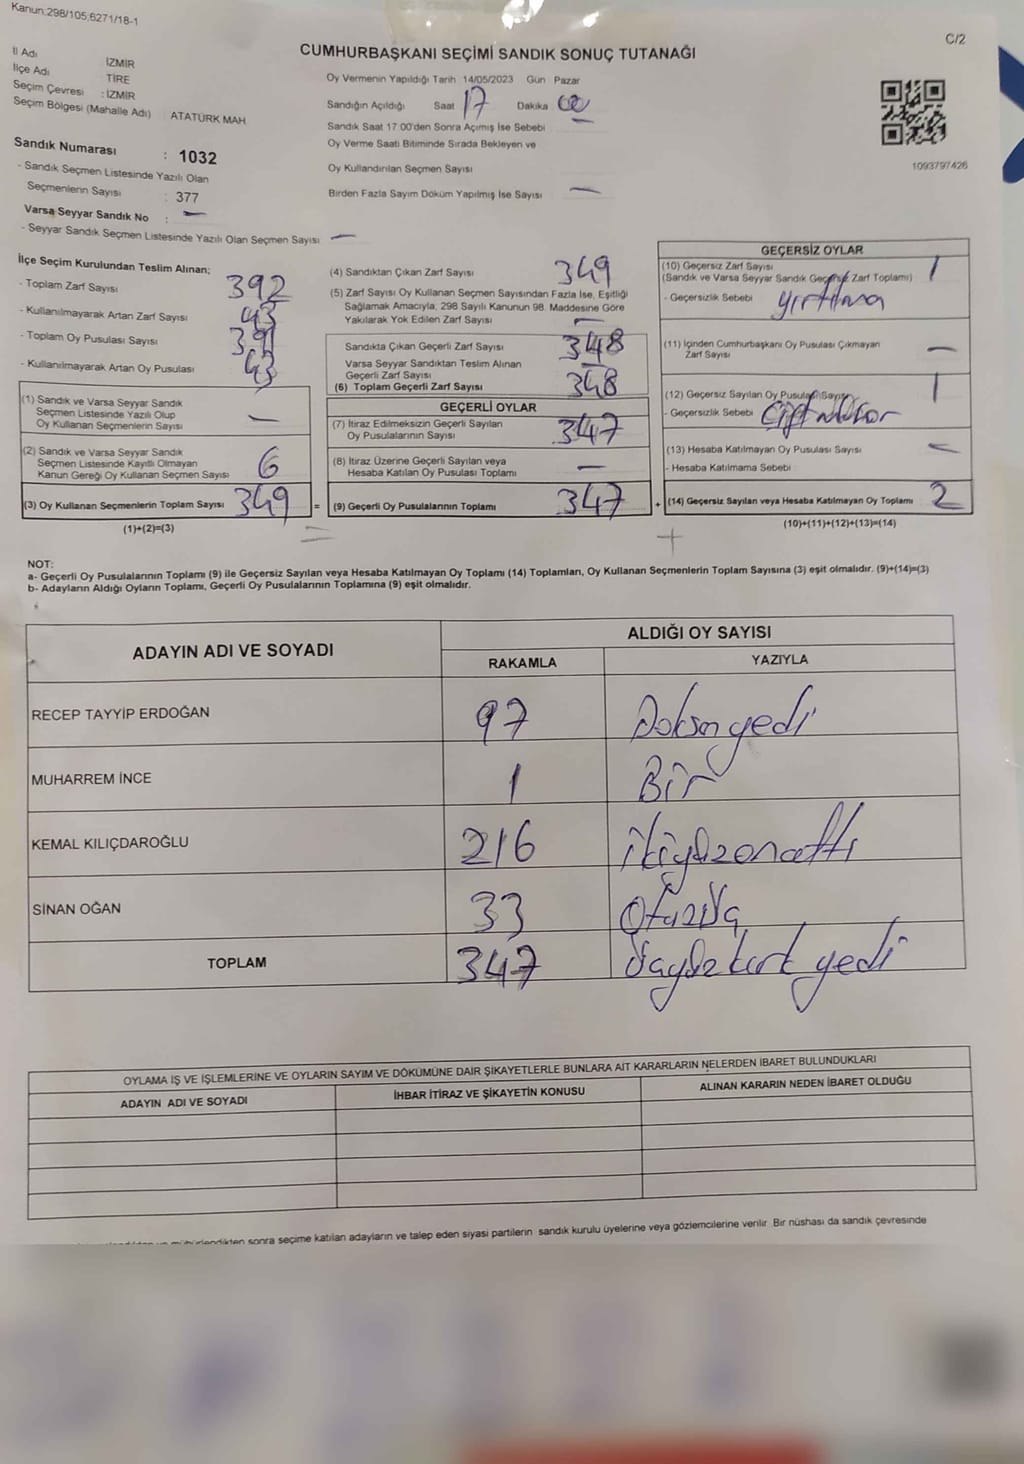 Kanun:298/105,6271/18-1
C/2
CUMHURBAŞKANI SEÇİMİ SANDIK SONUÇ TUTANAĞI
İl Adı İZMİR
İlçe Adı TİRE
Seçim Çevresi : İZMİR
Seçim Bölgesi (Mahalle Adı) ATATÜRK MAH.
Sandık Numarası : 1032
- Sandık Seçmen Listesinde Yazılı Olan
Seçmenlerin Sayısı : 377
Varsa Seyyar Sandık No : —
- Seyyar Sandık Seçmen Listesinde Yazılı Olan Seçmen Sayısı —
Oy Vermenin Yapıldığı Tarih 14/05/2023 Gün Pazar
Sandığın Açıldığı Saat 17 Dakika 00
Sandık Saat 17:00'den Sonra Açımış İse Sebebi —
Oy Verme Saati Bitiminde Sırada Bekleyen ve
Oy Kullandırılan Seçmen Sayısı
Birden Fazla Sayım Döküm Yapılmış İse Sayısı —
1093797426
İlçe Seçim Kurulundan Teslim Alınan;
- Toplam Zarf Sayısı 392
- Kullanılmayarak Artan Zarf Sayısı 43
- Toplam Oy Pusulası Sayısı 391
- Kullanılmayarak Artan Oy Pusulası 43
(1) Sandık ve Varsa Seyyar Sandık
Seçmen Listesinde Yazılı Olup
Oy Kullanan Seçmenlerin Sayısı —
(2) Sandık ve Varsa Seyyar Sandık
Seçmen Listesinde Kayıtlı Olmayan
Kanun Gereği Oy Kullanan Seçmen Sayısı 6
(3) Oy Kullanan Seçmenlerin Toplam Sayısı 349 =
(1)+(2)=(3)
(4) Sandıktan Çıkan Zarf Sayısı 349
(5) Zarf Sayısı Oy Kullanan Seçmen Sayısından Fazla İse, Eşitliği
Sağlamak Amacıyla, 298 Sayılı Kanunun 98. Maddesine Göre
Yakılarak Yok Edilen Zarf Sayısı —
Sandıkta Çıkan Geçerli Zarf Sayısı 348
Varsa Seyyar Sandıktan Teslim Alınan
Geçerli Zarf Sayısı —
(6) Toplam Geçerli Zarf Sayısı 348
GEÇERLİ OYLAR
(7) İtiraz Edilmeksizin Geçerli Sayılan
Oy Pusulalarının Sayısı 347
(8) İtiraz Üzerine Geçerli Sayılan veya
Hesaba Katılan Oy Pusulası Toplamı —
(9) Geçerli Oy Pusulalarının Toplamı 347 +
= +
GEÇERSİZ OYLAR
(10) Geçersiz Zarf Sayısı 1
(Sandık ve Varsa Seyyar Sandık Geçersiz Zarf Toplamı)
- Geçersizlik Sebebi yırtılma
(11) İçinden Cumhurbaşkanı Oy Pusulası Çıkmayan
Zarf Sayısı —
(12) Geçersiz Sayılan Oy Pusulası Sayısı 1
- Geçersizlik Sebebi
(13) Hesaba Katılmayan Oy Pusulası Sayısı —
- Hesaba Katılmama Sebebi
(14) Geçersiz Sayılan veya Hesaba Katılmayan Oy Toplamı 2
(10)+(11)+(12)+(13)=(14)
NOT:
a- Geçerli Oy Pusulalarının Toplamı (9) ile Geçersiz Sayılan veya Hesaba Katılmayan Oy Toplamı (14) Toplamları, Oy Kullanan Seçmenlerin Toplam Sayısına (3) eşit olmalıdır. (9)+(14)=(3)
b- Adayların Aldığı Oyların Toplamı, Geçerli Oy Pusulalarının Toplamına (9) eşit olmalıdır.
ADAYIN ADI VE SOYADI ALDIĞI OY SAYISI
RAKAMLA YAZIYLA
RECEP TAYYİP ERDOĞAN 97 Doksan yedi
MUHARREM İNCE 1 Bir
KEMAL KILIÇDAROĞLU 216 ikiyüzonaltı
SİNAN OĞAN 33 Otuzüç
TOPLAM 347 üçyüzkırk yedi
OYLAMA İŞ VE İŞLEMLERİNE VE OYLARIN SAYIM VE DÖKÜMÜNE DAİR ŞİKAYETLERLE BUNLARA AİT KARARLARIN NELERDEN İBARET BULUNDUKLARI
ADAYIN ADI VE SOYADI İHBAR İTİRAZ VE ŞİKAYETİN KONUSU ALINAN KARARIN NEDEN İBARET OLDUĞU
mühürlendikten sonra seçime katılan adayların ve talep eden siyasi partilerin sandık kurulu üyelerine veya gözlemcilerine verilir. Bir nüshası da sandık çevresinde